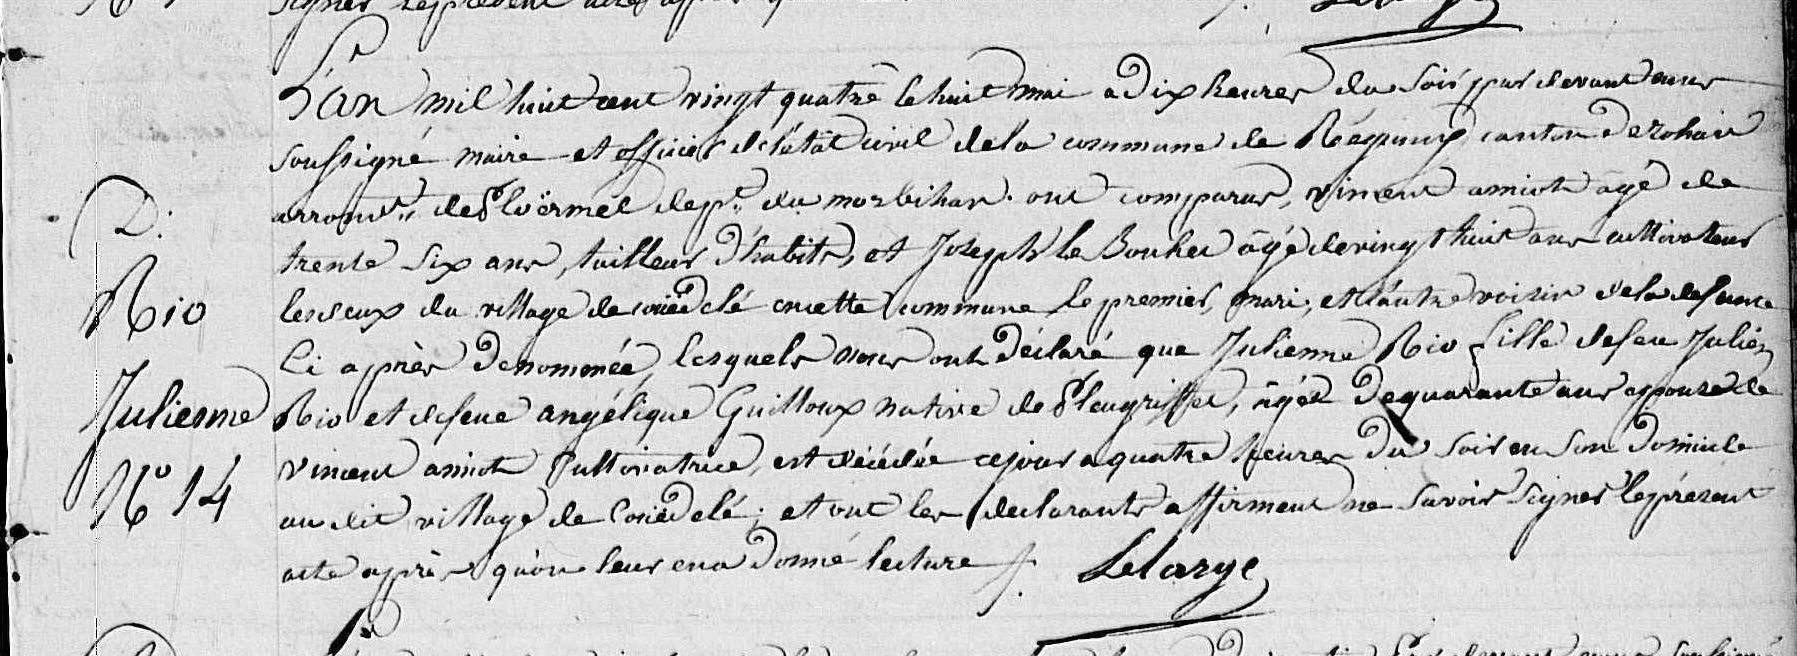 L'an mil huit cent vingt quatre le huit mai a dix heures du soir par devant nous
soussigné maire et officier de l'état civil de la commune de Réguiny canton de rohan
arrondt. de Ploërmel dept. du morbihan. ont comparus, vincent amiot âgé de
D.
trente six ans, tailleur d'habits, et Joseph le Bouher âgé de vingt huit ans cultivateur
Rio
les deux du village de couëdelé en cette commune le premier, mari, et l'autre voisin de la defunte
Ci après denommée, lesquels nous ont déclaré que Julienne Rio fille de feu Julien
Julienne
Rio et de feue angélique Guilloux native de Pleugriffet, âgée de quarante ans epouse de
vincent amiot Cultivatrice, est décédée ce jour a quatre heures du soir en son domicile
N° 14
au dit village de Couëdelé; et ont les declarants affirment ne savoir signer le présent
acte après qu'on leur en a donné lecture /.
Lelarge